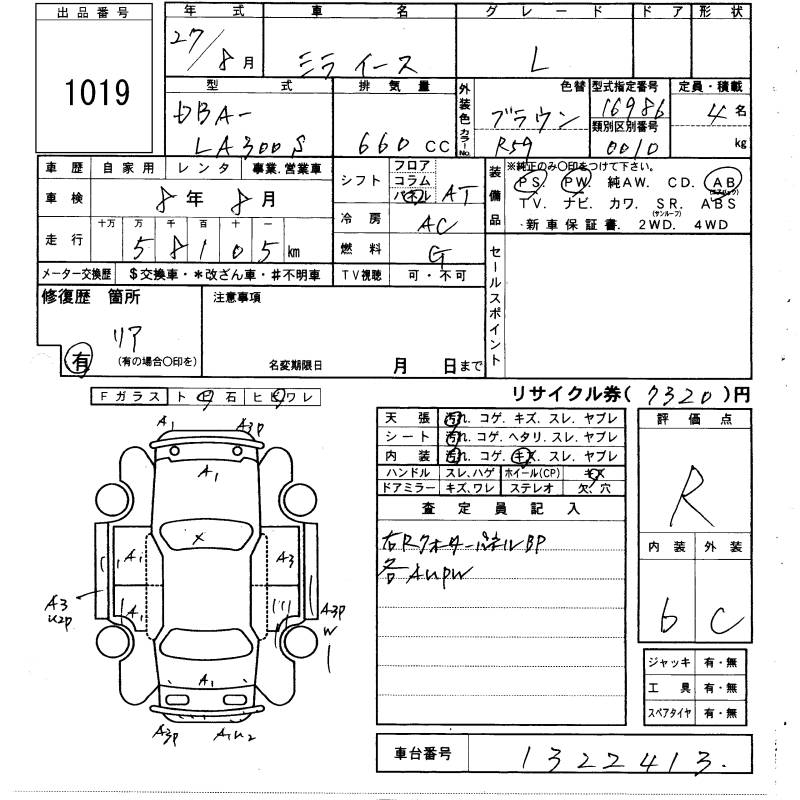 出品番号
1019
年式 車名 グレード ドア 形状
27/8月 ミライース L
型式 排気量 外装色 カラーNo. 色替 型式指定番号 定員・積載
DBA-
LA300S 660 CC ブラウン R59 16986 4名
類別区別番号
0010 kg
車歴 自家用 レンタ 事業.営業車
車検 8年 8月
走行 十万 万 千 百 十 一
58105km
メーター交換歴 $交換車・*改ざん車・#不明車
シフト フロア コラム パネル AT
冷房 AC
燃料 G
TV視聴 可・不可
装備品 ※純正のみ〇印をつけて下さい。
PS. PW. 純AW. CD. AB (エアバック)
TV. ナビ. カワ. SR. (サンルーフ) ABS
新車保証書. 2WD. 4WD
セールスポイント
修復歴 箇所 注意事項
リア
有 (有の場合〇印を) 名変期限日 月 日まで
Fガラス ト 石 ヒビワレ
リサイクル券(7320)円
天張 汚れ. コゲ. キズ. スレ. ヤブレ
シート 汚れ. コゲ. ヘタリ. スレ. ヤブレ
内装 汚れ. コゲ. キズ. スレ. ヤブレ
ハンドル スレ、ハゲ ホイール(CP) キズ
ドアミラー キズ、ワレ ステレオ 欠. 穴
査定員記入
右RクォーターパネルBP
各AUPW
評価点
R
内装 外装
6 C
ジャッキ 有・無
工具 有・無
スペアタイヤ 有・無
車台番号 1322413.
A1 A3P
A1
×
A1 A3
A3
U2P
A1
A3P
W
A1
A3P A1U2